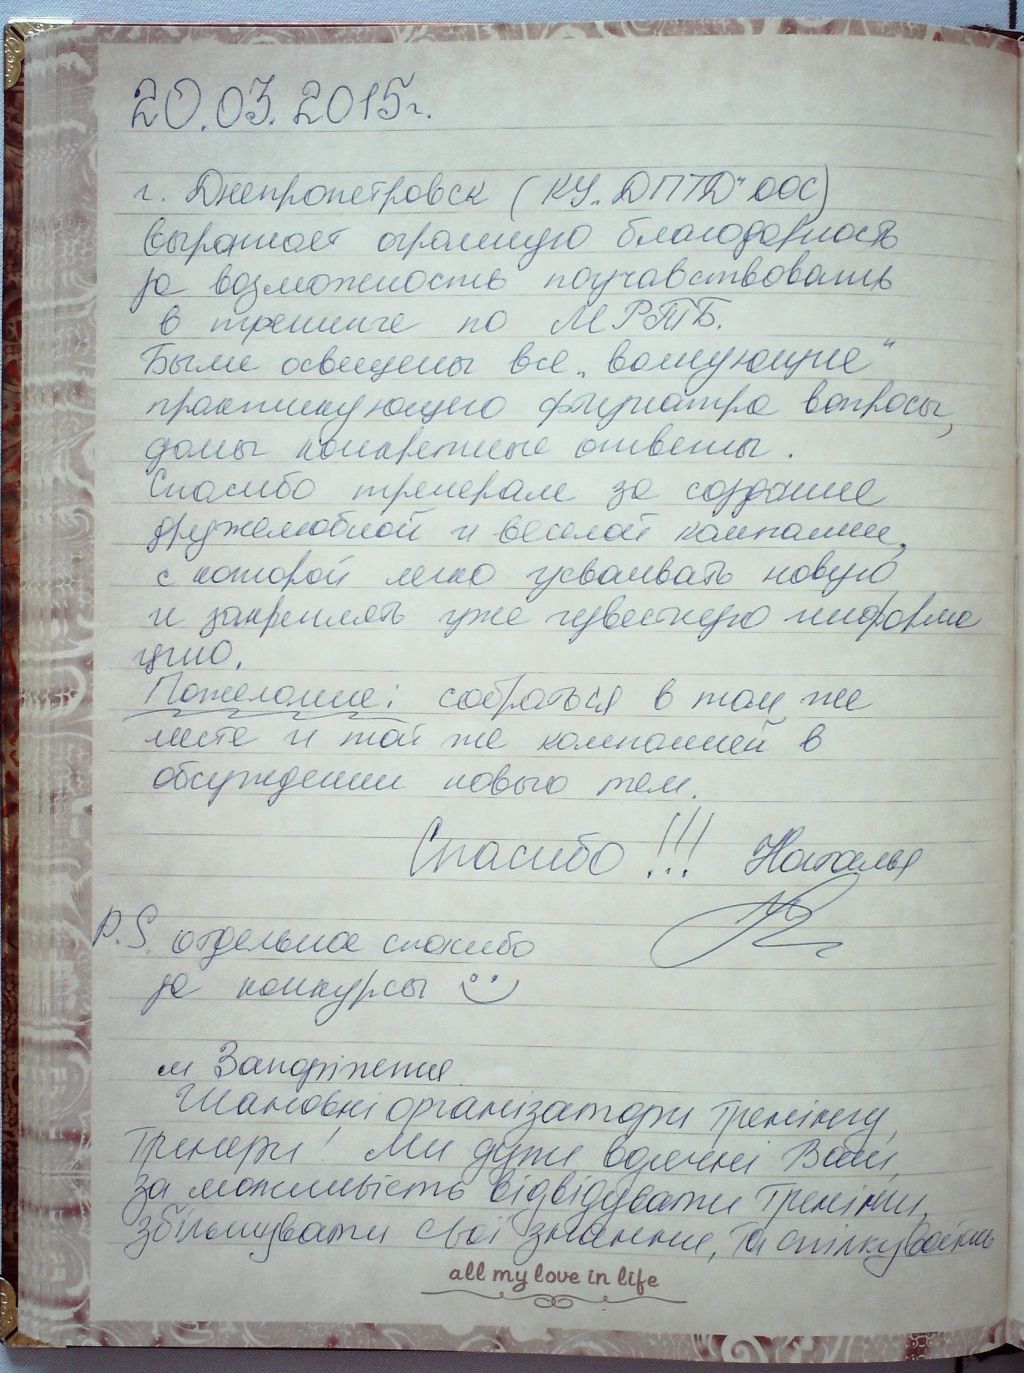 20.03.2015г.
г. Днепропетровск (КУ „ДПТД" ДОС)
Выражает огромную благодарность
за возможность поучавствовать
в тренинге по МРТБ.
Были освещены все „волнующие"
практикующего фтизиатра вопросы,
даны конкретные ответы.
Спасибо тренерам за создание
дружелюбной и веселой компании,
с которой легко усваивать новую
и закреплять уже известную информа
цию.
Пожелание: собраться в том же
месте и той же компанией в
обсуждении новых тем.
Спасибо!!! Наталья
P.S. отдельное спасибо
за конкурсы
м Запоріжжя
Шановні організатори тренінгу,
Тренери! Ми дуже вдячні Вам,
за можливість відвідувати тренінги,
збільшувати свої знання, та спілкуватись
all my love in life